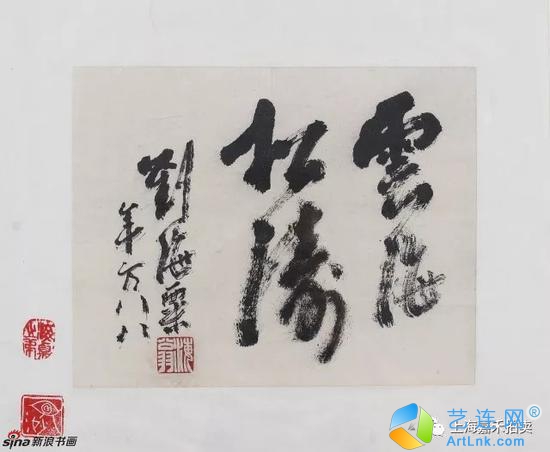 雲海
松濤
劉海粟
年方八八
海翁
sina新浪书画
上海嘉禾拍卖
艺连网®
ArtLnk.com